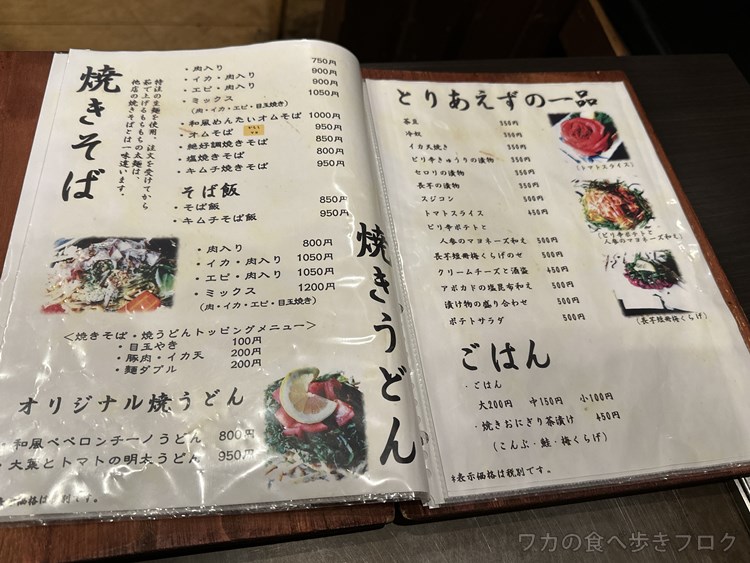 焼きそば
特注の生麺を使用、注文を受けてから
茹で上げるもちもちの太麺は、
他店の焼きそばとは一味違います。
・肉入り 750円
・イカ・肉入り 900円
・エビ・肉入り 900円
・ミックス 1050円
(肉・イカ・エビ・目玉焼き)
・和風めんたいオムそば 1000円
オムそば 950円
・絶好調焼きそば 850円
・塩焼きそば 800円
・キムチ焼きそば 950円
そば飯
・そば飯 850円
・キムチそば飯 950円
焼きうどん
・肉入り 800円
・イカ・肉入り 1050円
・エビ・肉入り 1050円
・ミックス 1200円
(肉・イカ・エビ・目玉焼き)
<焼きそば・焼うどんトッピングメニュー>
・目玉やき 100円
・豚肉・イカ天 200円
・麺ダブル 200円
オリジナル焼うどん
・和風ペペロンチーノうどん 800円
・大葉とトマトの明太うどん 950円
表示価格は税別です。
とりあえずの一品
茶豆 350円
冷奴 350円
イカ天焼き 350円
ピリ辛きゅうりの漬物 350円
セロリの漬物 350円
長芋の漬物 350円
スジコン 500円
トマトスライス 450円
ピリ辛ポテトと
人参のマヨネーズ和え 500円
長芋短冊梅くらげのせ 500円
クリームチーズと酒盗 450円
アボカドの塩昆布和え 500円
漬け物の盛り合わせ 500円
ポテトサラダ 500円
(トマトスライス)
(ピリ辛ポテトと
人参のマヨネーズ和え)
(長芋短冊梅くらげ)
ごはん
・ごはん
大200円 中150円 小100円
・焼きおにぎり茶漬け 450円
(こんぶ・鮭・梅くらげ)
*表示価格は税別です。
ワカの食べ歩きブログ